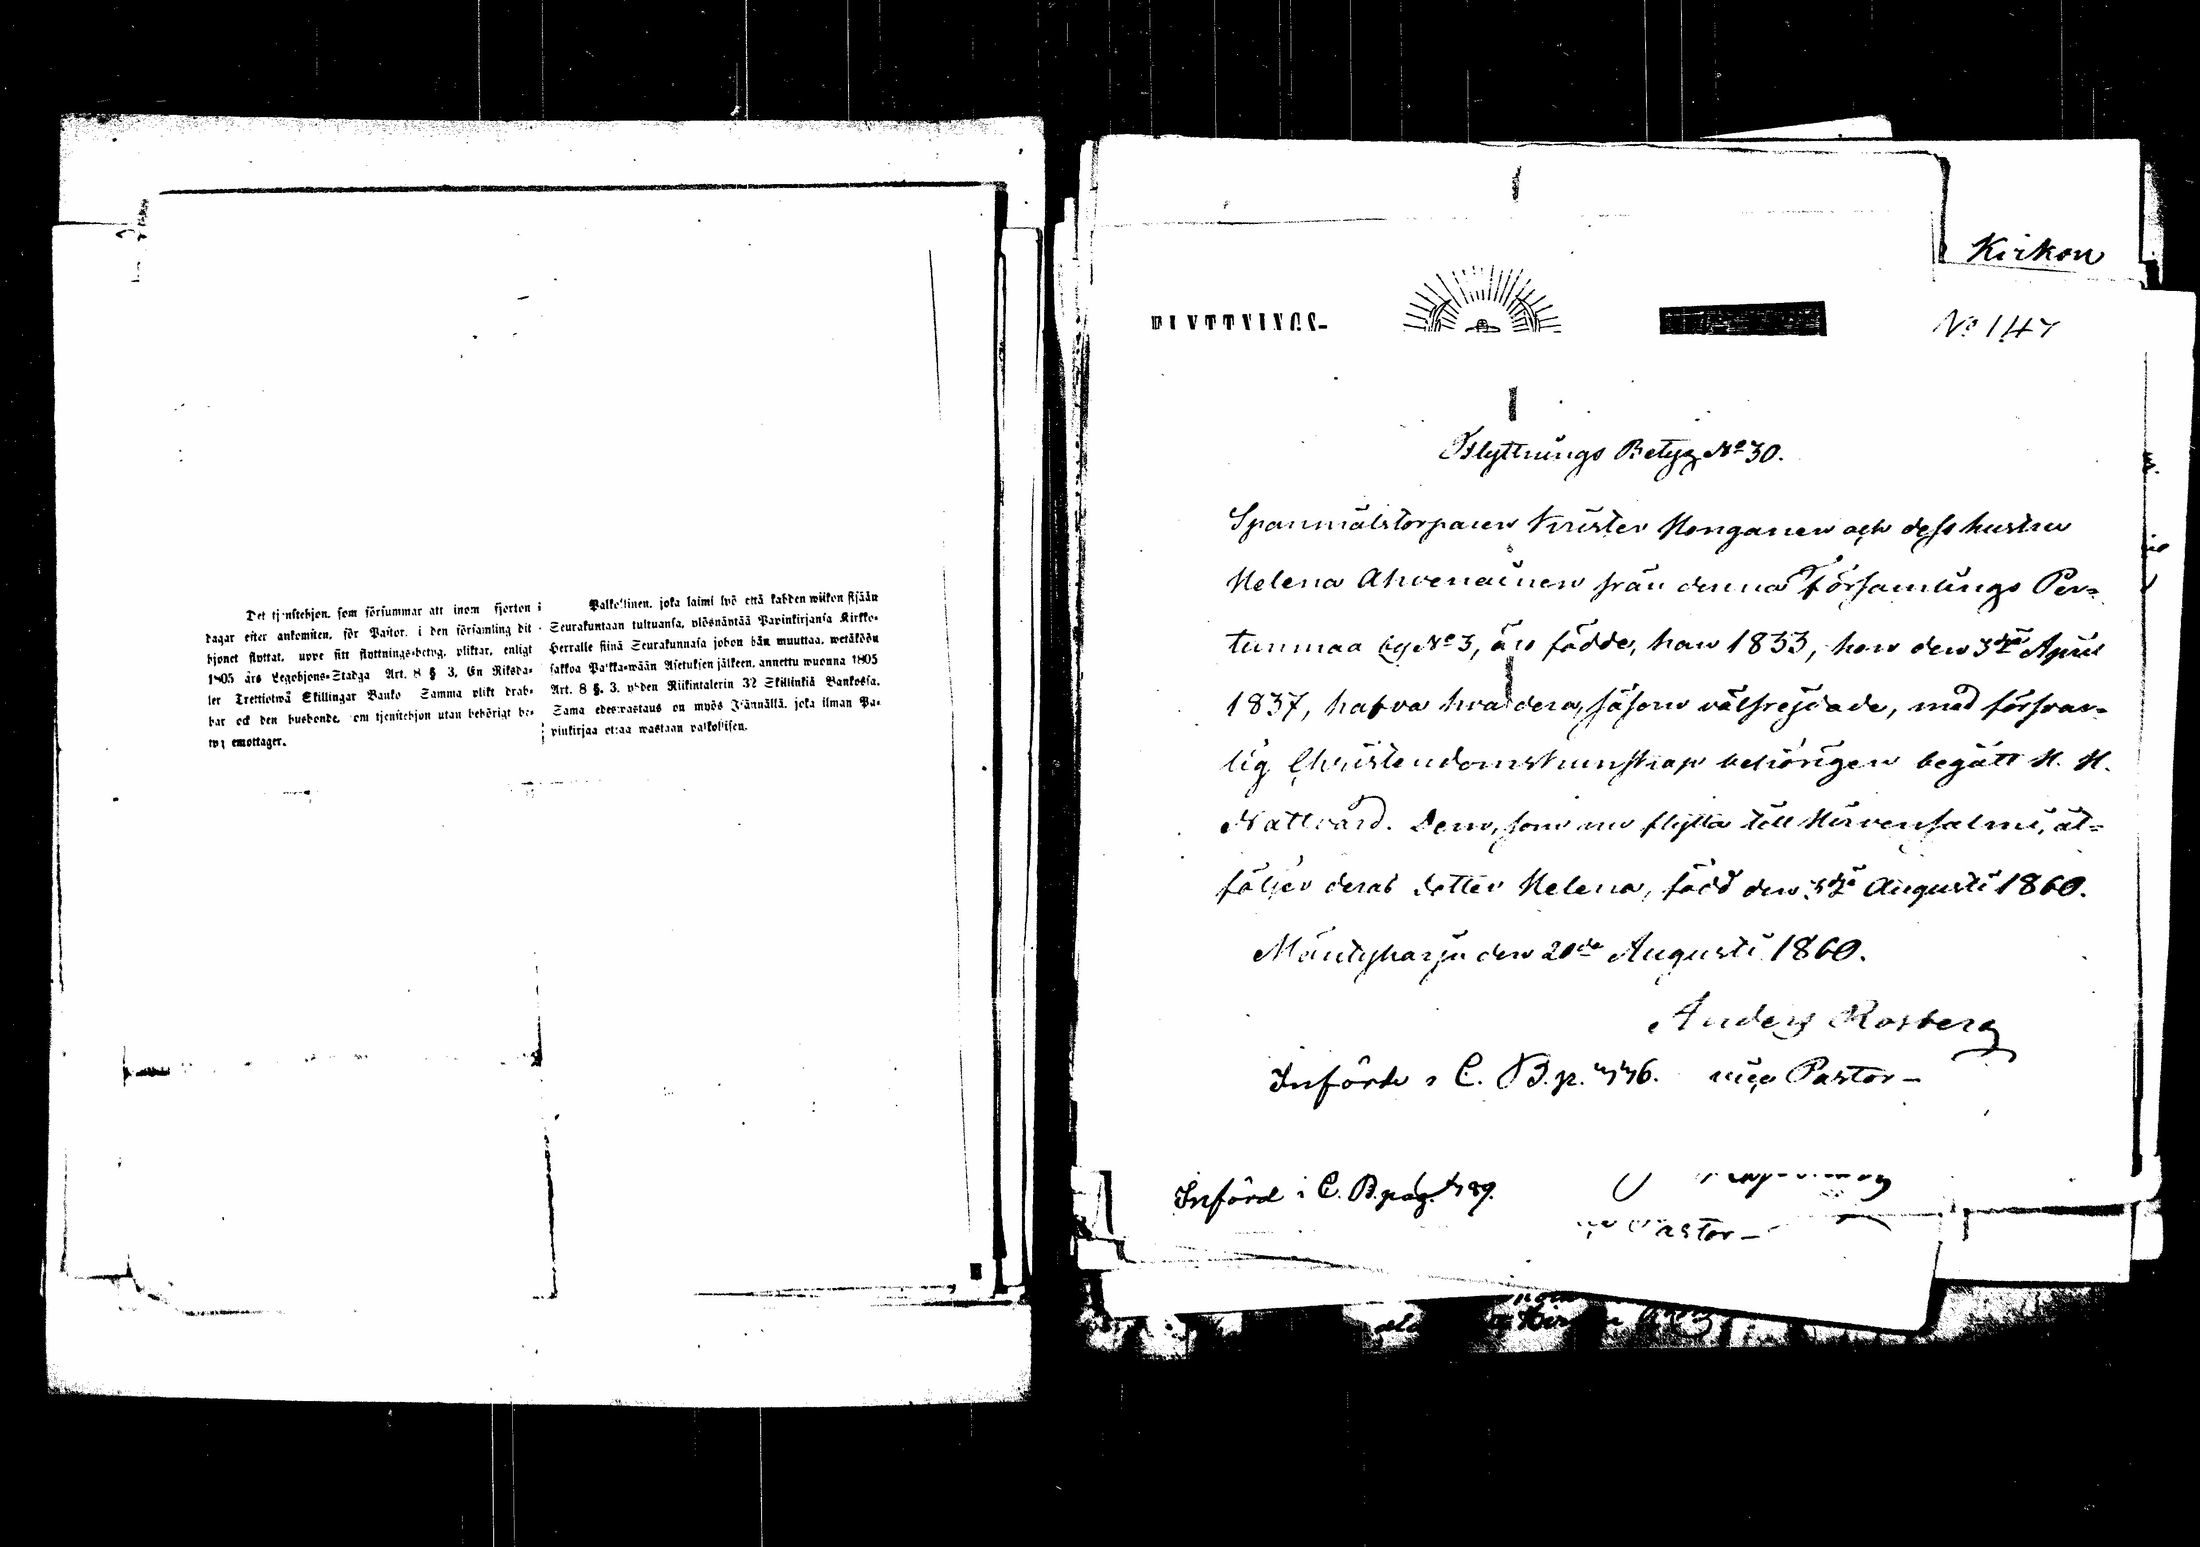 Det tjenstehjon, som försummar att inom fjorton
dagar efter ankomsten, för Pastor, i den församling dit
hjonet flyttat, uppe sitt flyttnings-betyg, pliktar, enligt
1805 års Legohjons-Stadga Art. 8 § 3, En Riksda-
ler Trettiotwå Skillingar Banko Samma plikt drab-
bar ock den husbonde, som tjenstehjon utan behörigt be-
tyg emottager.
Palkollinen, joka laimi lyö että kahden wiikon sisään
Seurakuntaan tultuansa, ylösnäyttää Papinkirjansa Kirkko-
Herralle siinä Seurakunnasa johon hän muuttaa, wetäköön
sakkoa Palkka-wään Asetuksen jälkeen, annettu wuonna 1805
Art. 8 §. 3. yhden Riikintalerin 32 Skillinkiä Bankossa.
Sama edeswastaus on myös Isännällä, joka ilman Pa-
pinkirjaa ottaa wastaan palkollisen.
Kirkon
FLYTTNINGS-
No 147
Flyttnings Betyg No 30.
Spanmålstorparen Krister Honganen och dess hustru
Helena Ahvenainen från denna Församlings Per-
tunmaa by No 3, äro födde, han 1833, hon den 3dje April
1837, hafva hvardera, såsom välfrejdade, med försvar-
lig Christendomskunskap behörigen begått H. H.
Nattvard. Dem, som nu flytta till Hirvensalmi, åt-
följer deras dotter Helena, född den Augusti 1860.
Mäntyharju den 20de Augusti 1860.
Anders Rosberg
Införde i C. B. p. vice Pastor -
Införd i C. B. pag.
Pastor -